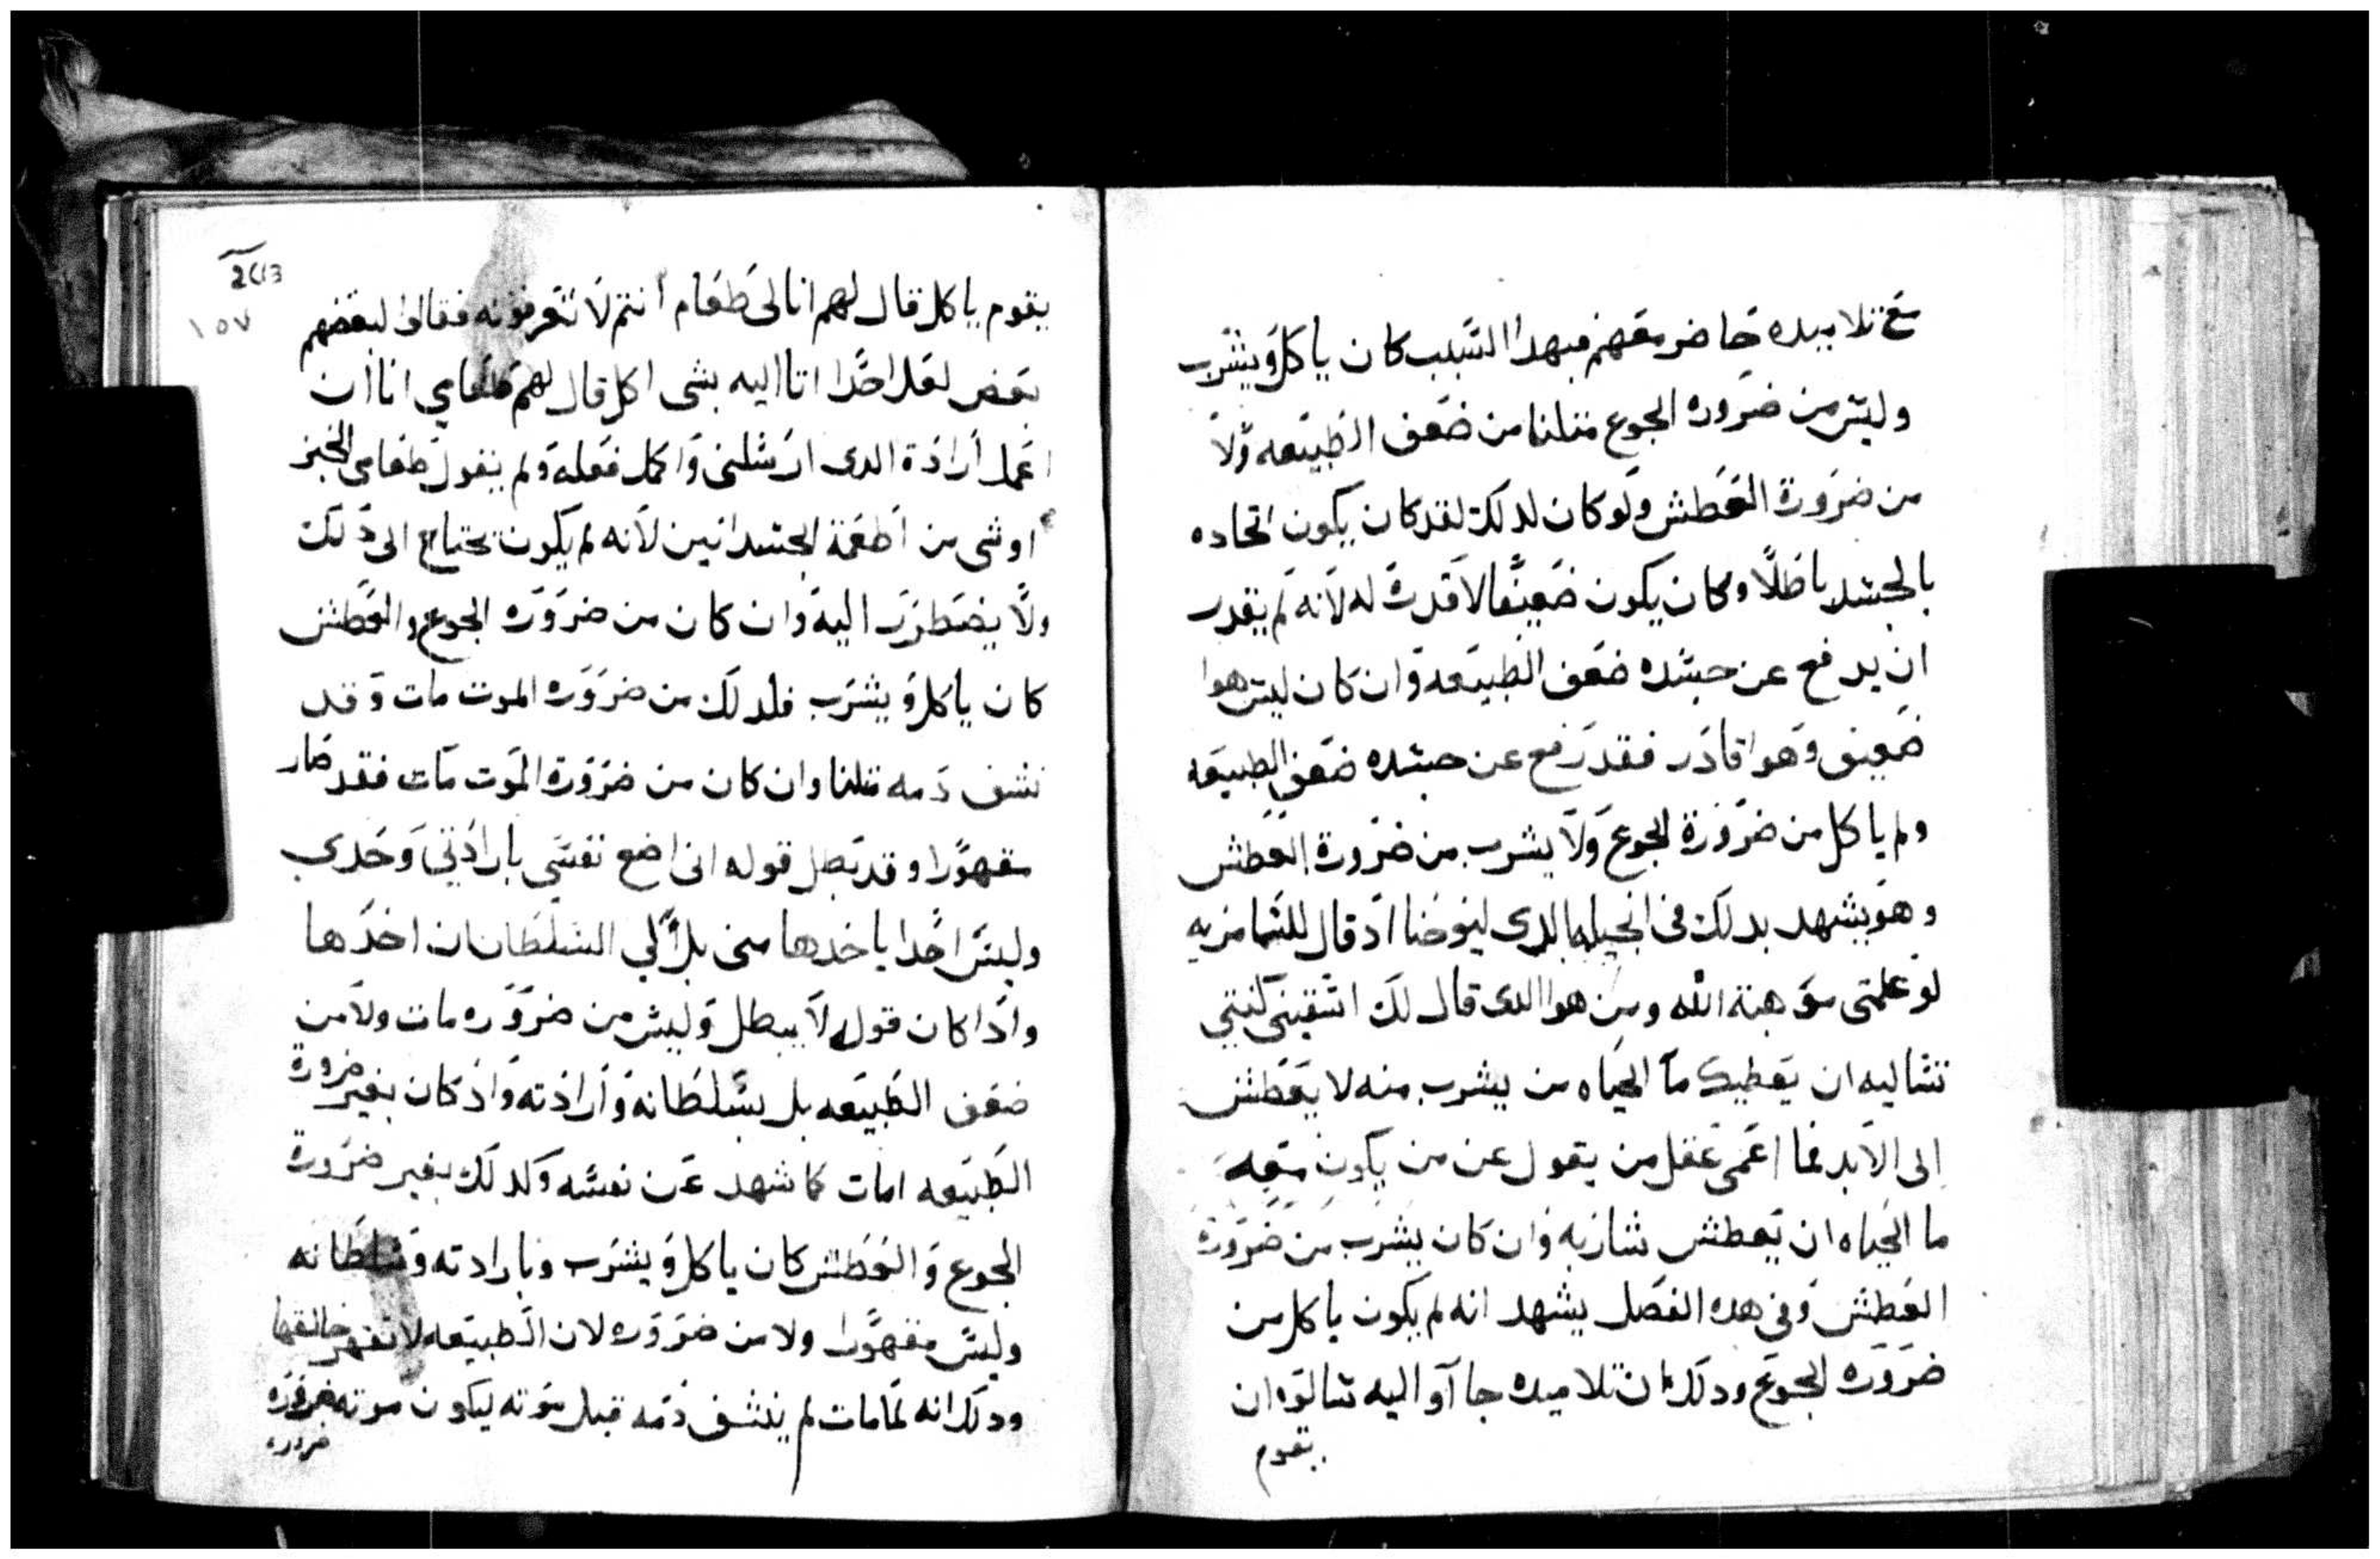 مع تلاميده حاضر معهم فبهدا السبب كان ياكل ويشرب
وليس من ضروره الجوع متلنا من ضعف الطبيعه ولا
من ضرورة العطش ولو كان لدلك لقد كان يكون اتحاده
بالجسد باطلا وكان يكون ضعيفا لا قدرة له لانه لم يقدر
ان يدفع عن جسده ضعف الطبيعه وان كان ليس هوا
ضعيف وهوا قادر فقد رفع عن جسده ضعف الطبيعه
ولم ياكل من ضرورة الجوع ولا يشرب من ضرورة العطش
وهو يشهد بدلك فى انجيله الدى ليوحنا اد قال للسامريه
لو علمتى موهبة الله ومن هوا الدى قال لك اسقينى كنتي
تساليه ان يعطيك ما الحياه من يشرب منه لا يعطش
الى الابد فما اعمى عقل من يقول عن من يكون معه
ما الحياه ان يعطش شاربه وان كان يشرب من ضرورة
العطش وفى هده الفصل يشهد انه لم يكون ياكل من
ضروره الجوع ودلك ان تلاميده جاآو اليه سالوه ان
يقوم
2613
١٥٧
يقوم ياكل قال لهم انا لى طعام انتم لا تعرفونه فقالوا لبعضهم
بعض لعل احدا اتا اليه بشى اكل قال لهم طعامي انا ان
اعمل ارادة الدى ارسلنى واكمل فعله ولم يقول طعامى الخبز
اوشى من اطعمة الجسدانيين لانه لم يكون يحتاج الى دلك
ولا يضطرب اليه وان كان من ضروره الجوع والعطش
كان ياكل ويشرب فلدلك من ضروره الموت مات وقد
نشف دمه متلنا وان كان من ضرورة الموت مات فقد صار
مقهورا وقد بطل قوله انى اضع نفسي بارادتي وحدى
وليس احدا ياخدها منى بل لي السلطان ان اخدها
وادا كان قوله لا يبطل وليس من ضروره مات ولا من
ضعف الطبيعه بل بسلطانه وارادته واد كان بغير ضرورة
الطبيعه امات كما شهد عن نفسه وكدلك بغير ضرورة
الجوع والعطش كان ياكل ويشرب وبارادته وسلطانه
وليس مقهورا ولا من ضروره لان الطبيعه لا تقهر خالقها
ودلك انه لما مات لم ينشف دمه قبل موته ليكون موته ضروره
ضروره